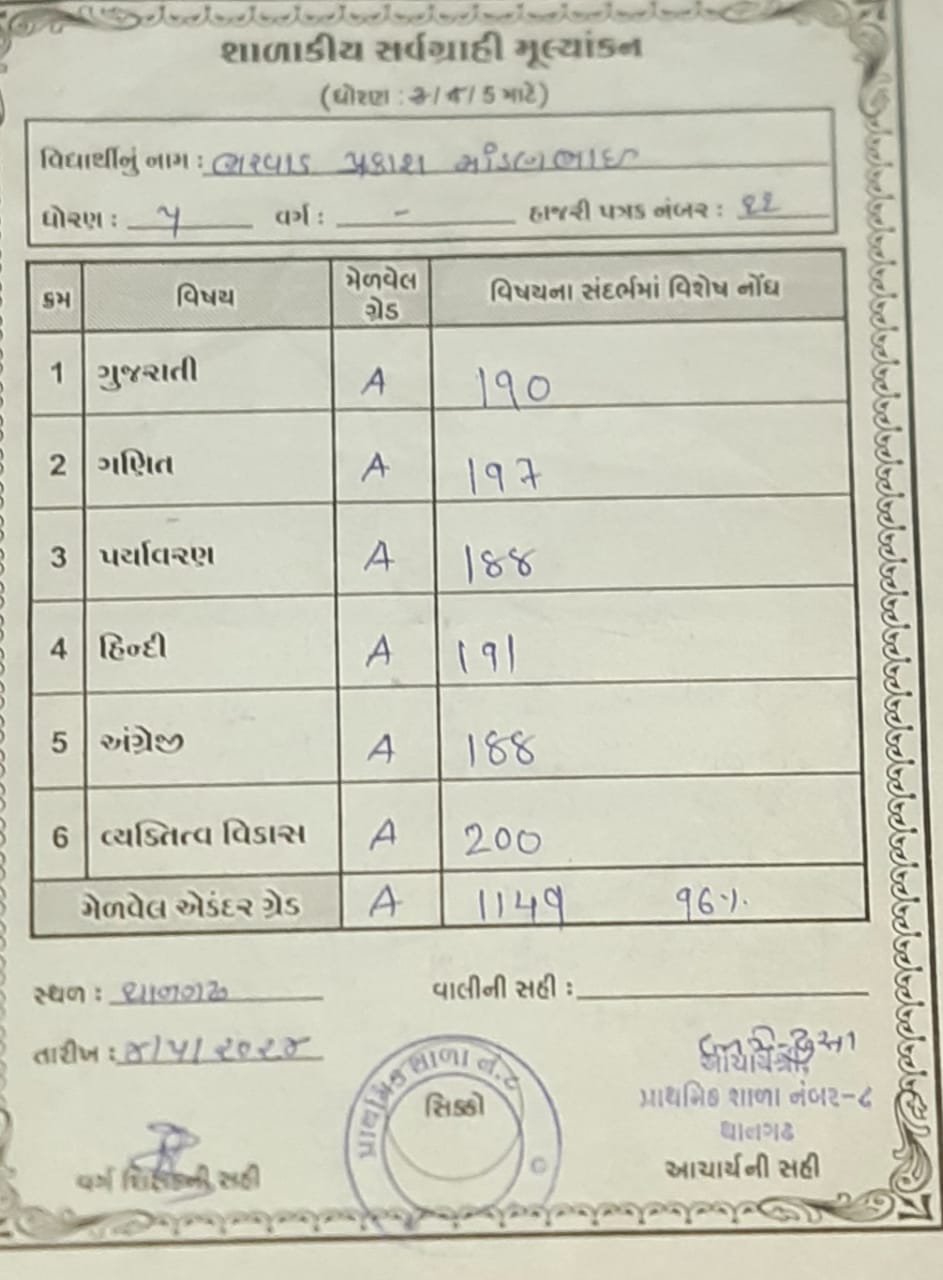 શાળાકીય સર્વગ્રાહી મૂલ્યાંકન
(ધોરણ : ૩ / ૪ / 5 માટે)
વિદ્યાર્થીનું નામ : ભરવાડ પ્રકાશ માંડણભાઇ
ધોરણ : ૫ વર્ગ : - હાજરી પત્રક નંબર : ૨૨
ક્રમ વિષય મેળવેલ ગ્રેડ વિષયના સંદર્ભમાં વિશેષ નોંધ
1 ગુજરાતી A 190
2 ગણિત A 197
3 પર્યાવરણ A 188
4 હિન્દી A 191
5 અંગ્રેજી A 188
6 વ્યક્તિત્વ વિકાસ A 200
મેળવેલ એકંદર ગ્રેડ A 1149 96%
સ્થળ : થાનગઢ વાલીની સહી :
તારીખ : ૪/૫/૨૦૨૪
પ્રાથમિક શાળા નં. ૮
સિક્કો
આચાર્યશ્રી
પ્રાથમિક શાળા નંબર-૮
થાનગઢ
વર્ગ શિક્ષકની સહી આચાર્યની સહી